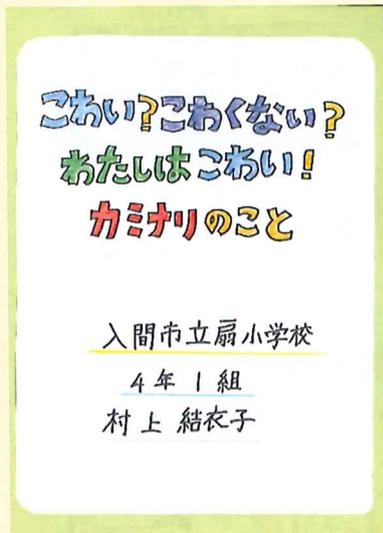 こわい?こわくない?
わたしはこわい!
カミナリのこと
入間市立扇小学校
4年1組
村上結衣子